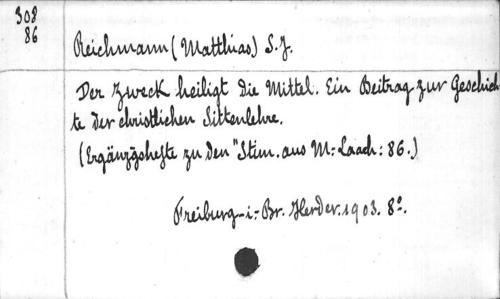 308
86
Reichmann (Matthias) S.J.
Der Zweck heiligt die Mittel. Ein Beitrag zur Geschich-
te der christlichen Sittenlehre.
(Ergänzgshefte zu den "Stim. aus M.-Laach: 86.)
Freiburg-i.-Br. Herder. 1903. 8°.